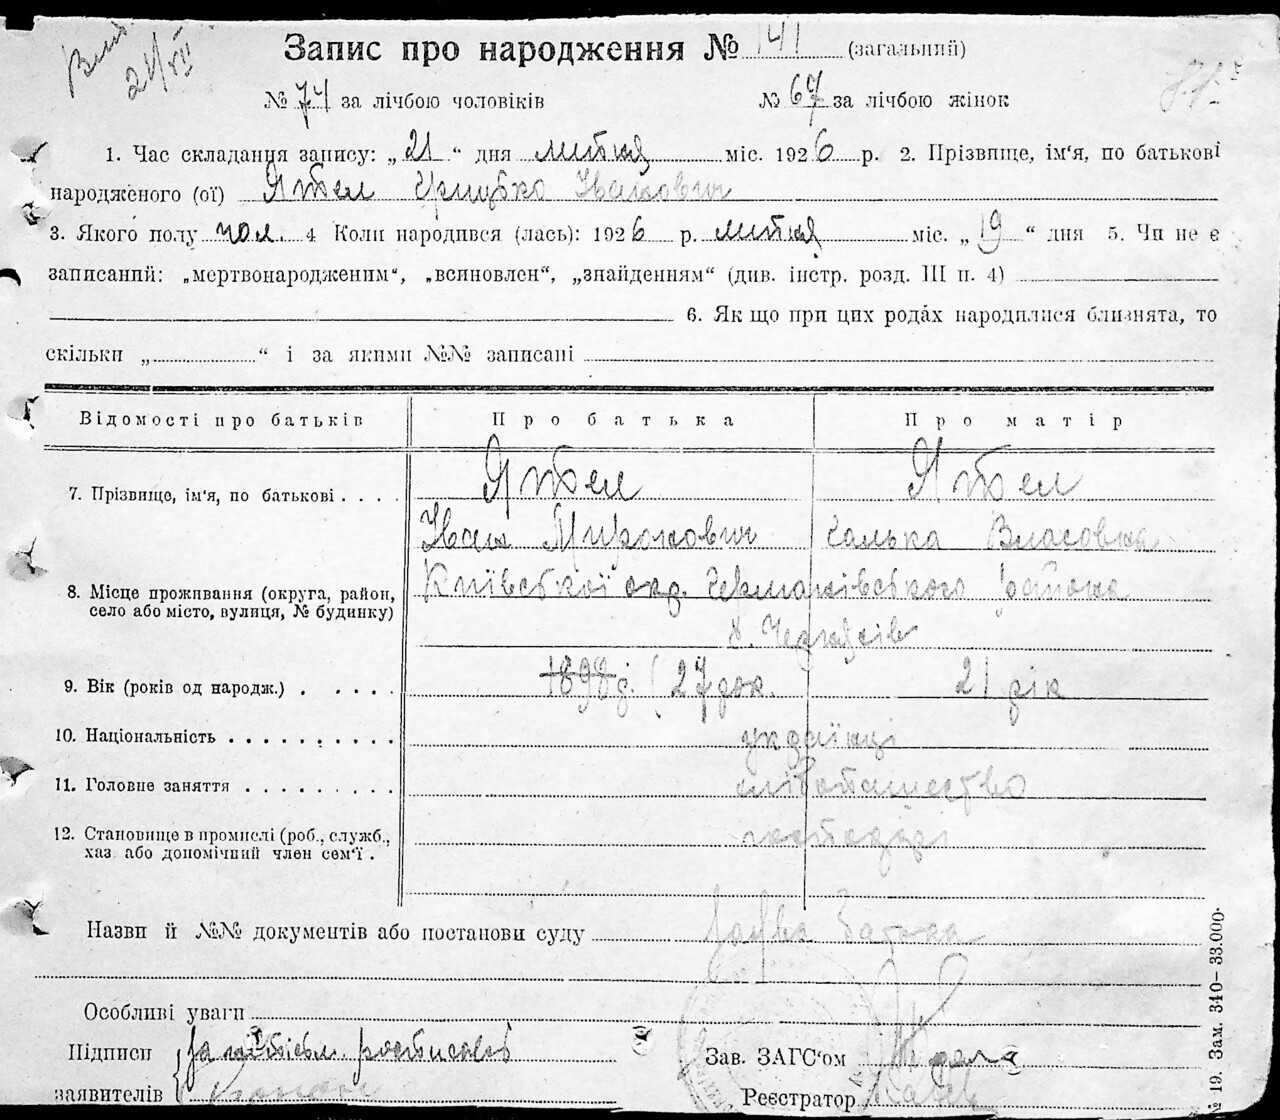 Запис про народження № 141 (загальний)
№ 74 за лічбою чоловіків № 67 за лічбою жінок
1. Час складання запису: „ 21 “ дня лютця міс. 1926 р. 2. Прізвище, ім'я, по батькові
народженого (ої) Ятел Грицько Іванович
3. Якого полу чол. 4 Коли народився (лась): 1926 р. лютця міс. „ 19 “ дня 5. Чи не є
записаний: „мертвонародженим“, „всиновлен“, „знайденням“ (див. інстр. розд. III п. 4)
6. Якщо при цих родах народилися близнята, то
скільки „ “ і за якими №№ записані
Відомості про батьків Про батька Про матір
7. Прізвище, ім'я, по батькові Ятел Ятел
Іван Миронович Галька Власовна
8. Місце проживання (округа, район, Київської окр. Германівського района
село або місто, вулиця, № будинку)
9. Вік (років од народж.) 1898 р. ( 27 рок. 21 рік
10. Національність українці
11. Головне заняття
12. Становище в промислі (роб., служб., господарі
хаз. або допомічний член сем'ї.
Назви й №№ документів або постанови суду заява батька
Особливі уваги
Підписи
заявителів
Зав. ЗАГС'ом
Реєстратор
№ 19. Зам. 340–33.000.